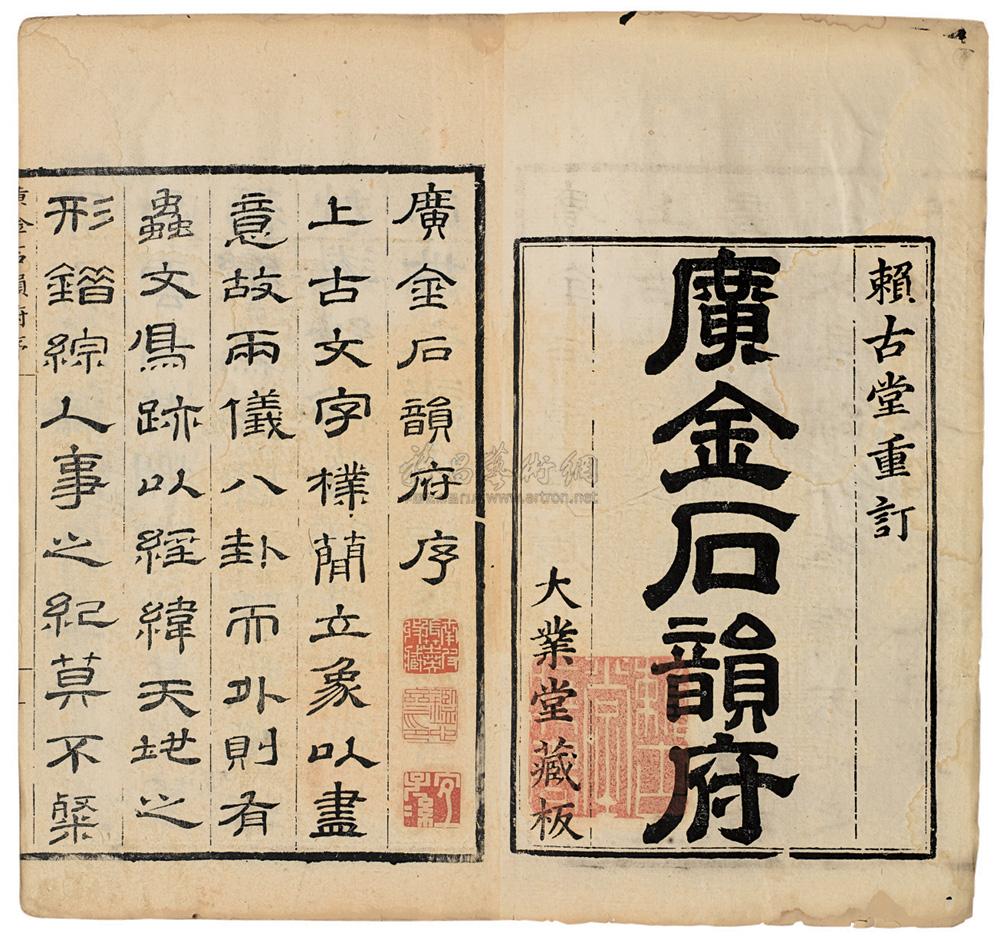 賴古堂重訂
廣金石韻府
大業堂藏板
廣金石韻府序
上古文字樸蕳立象以盡
意故兩儀八卦而外則有
蟲文鳥跡以經緯天地之
形錯綜人事之紀莫不粲
廣金石韻府序
雅昌藝術網
www.artron.net